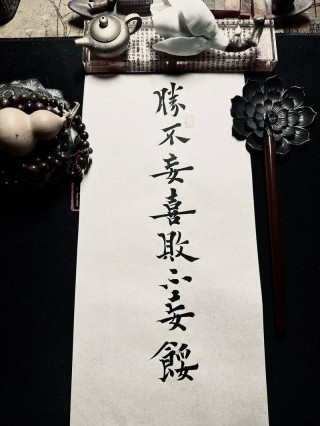 勝不妄喜敗不妄餒